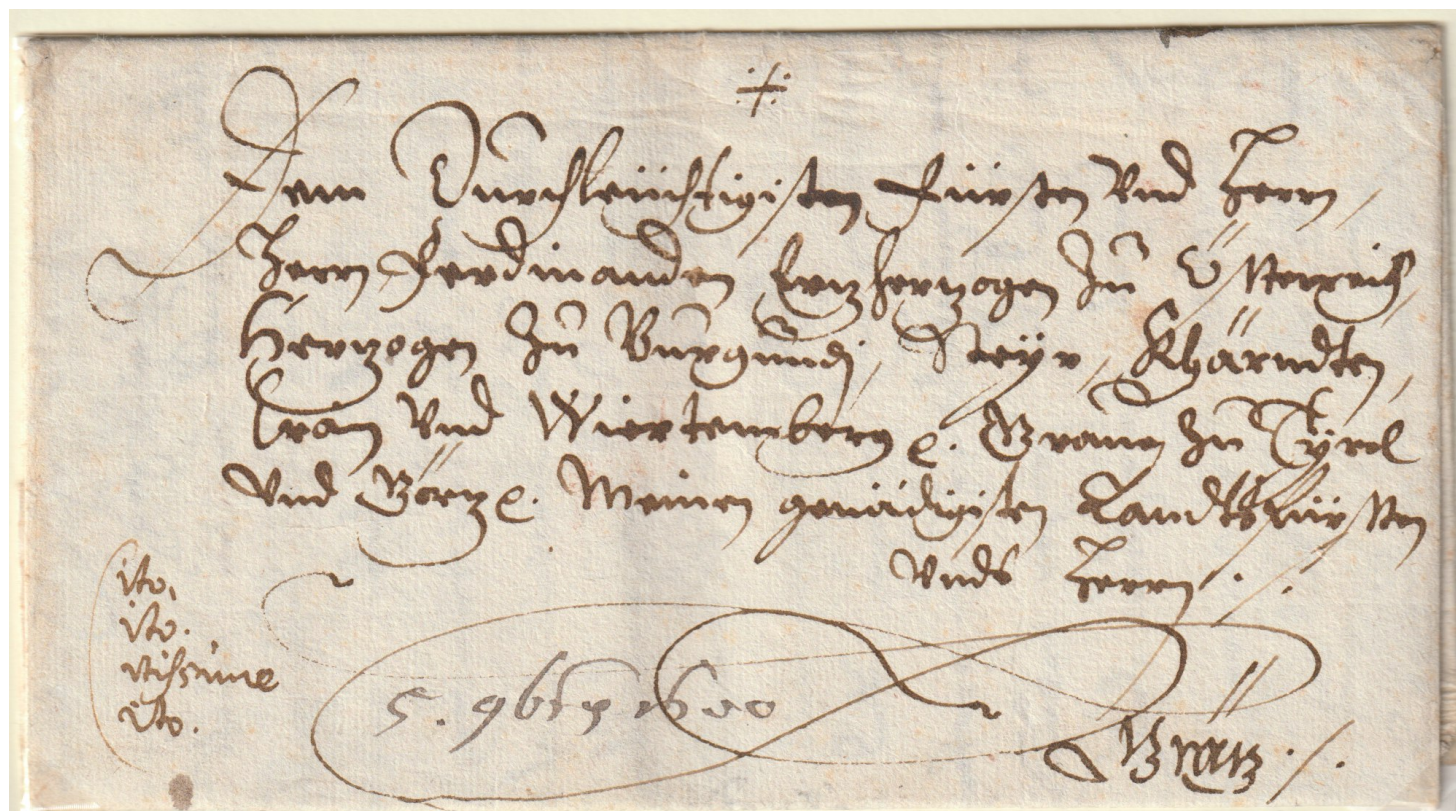 Dem Durchleüchtigisten Fürsten Vnd Herrn,
Herrn Ferdinanden Ertzhertzogen Zu Österreich,
Hertzogen Zu Burgundj, Steyr, Khärndten,
Crain Vnd Wiertemberg e. Graue Zu Tyrol
Vnd Görtz e. Meinen genädigisten Landtsfürsten
Vnds Herrn
Cito,
Cito.
Citissime
Cito.
5. 9bris 1600
Grätz